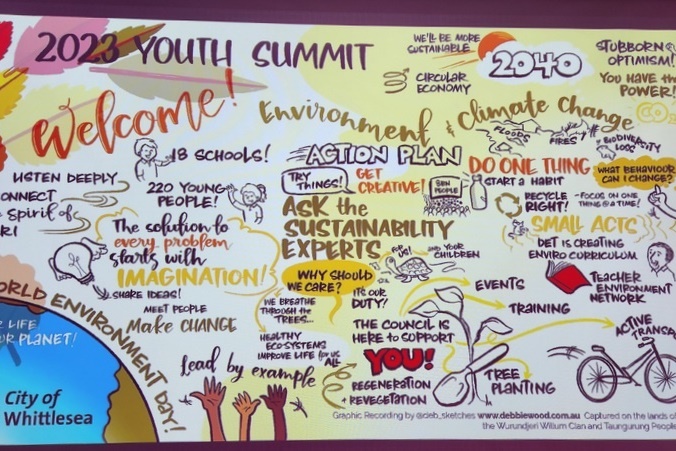 2023 YOUTH SUMMIT
Welcome!
18 SCHOOLS!
LISTEN DEEPLY
220 YOUNG
PEOPLE!
ONNECT
Spirit of
RI
The solution to
every problem
starts with
IMAGINATION!
SHARE IDEAS!
MEET PEOPLE
Make CHANGE
Lead by example
ORLD ENVIRONMENT DAY!
LIFE
UR PLANET!
City of
Whittlesea
WE'LL BE MORE
SUSTAINABLE
2040
CIRCULAR
ECONOMY
STUBBORN
OPTIMISM!
YOU HAVE th
POWER!
CO
Environment & Climate Change
FLOODS
FIRES
BIODIVERSITY
LOSS
ACTION PLAN
TRY
THINGS!
GET
CREATIVE!
PEOPLE
ASK the
SUSTAINABILITY
EXPERTS
FOR
US!
AND YOUR
CHILDREN
DO ONE THING
START A HABIT
WHAT BEHAVIOUR
CAN I CHANGE?
RECYCLE
RIGHT!
-FOCUS ON ONE
THING @ A TIME!
SMALL ACTS
DET IS CREATING
ENVIRO CURRICULUM
TEACHER
ENVIRONMENT
NETWORK
WHY SHOULD
WE CARE?
WE BREATHE
THROUGH the
TREES...
HEALTHY
ECO-SYSTEMS
IMPROVE LIFE for US
ALL
IT'S OUR
DUTY?
THE COUNCIL IS
HERE to SUPPORT
YOU!
REGENERATION
+ REVEGETATION
EVENTS
TRAINING
TREE
PLANTING
ACTIVE
TRANSP
Graphic Recording by @deb_sketches www.debbiewood.com.au Captured on the lands of
the Wurundjeri Willum Clan and Taungurung People